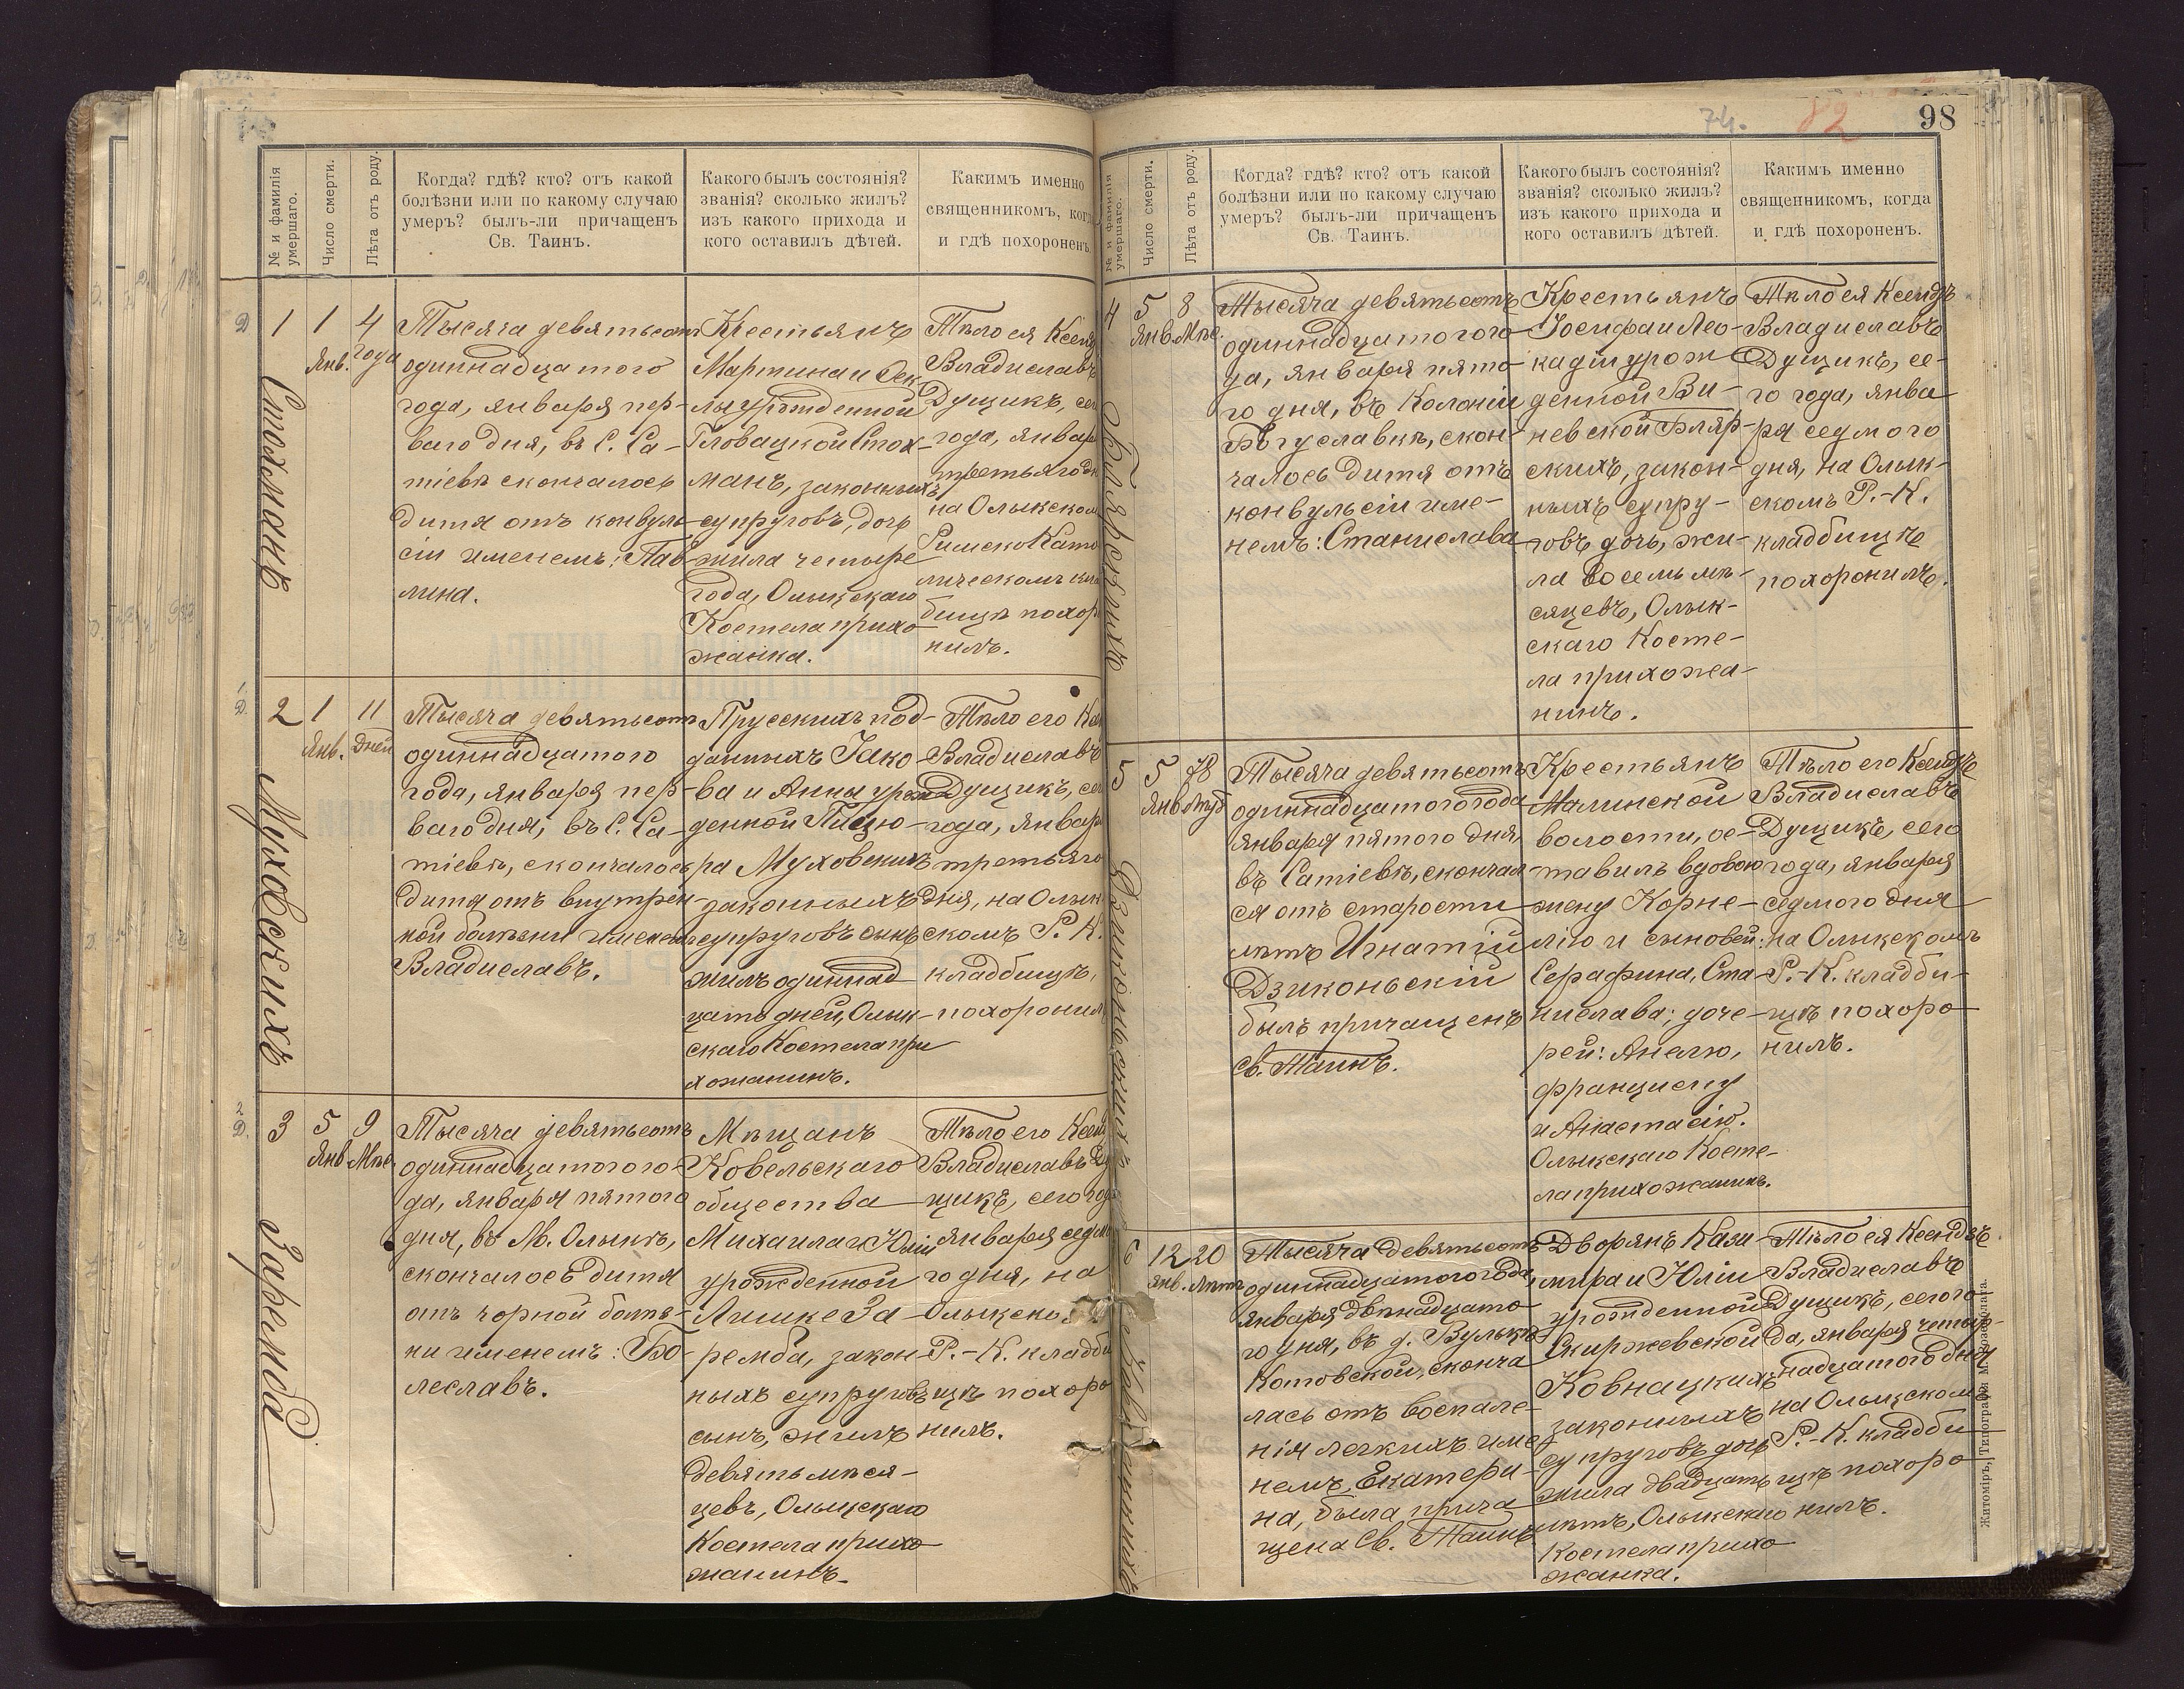 74.
82
98
№ и фамилія умершаго.
Число смерти.
Лѣта отъ роду.
Когда? гдѣ? кто? отъ какой
болѣзни или по какому случаю
умеръ? былъ-ли причащенъ
Св. Таинъ.
Какого былъ состоянія?
званія? сколько жилъ?
изъ какого прихода и
кого оставилъ дѣтей.
Каким��ъ именно
священникомъ, когда
и гдѣ похороненъ.
1
Стохманъ
1
Янв.
4
года
Тысяча девятьсотъ
одиннадцатого
года, января пер-
ваго дня, въ С. Са-
тіевѣ скончалось
дитя отъ конвуль-
сіи именемъ: Пав-
лина.
Крестьянъ
Мартина и Фек-
лы урожденной
Гловацкой Стох-
манъ, законныхъ
супруговъ, дочь
жила четыре
года, Олыцкаго
Костела прихо-
жанка.
Тѣло ея Ксендзъ
Владиславъ
Дущикъ, сего
года, января
третьяго дня
на Олыкском
Римско Като
лическомъ кла
бищѣ похоро
нилъ.
2
Муховскихъ
1
Янв.
11
дней
Тысяча девятьсотъ
одиннадцатого
года, января пер-
ваго дня, въ С. Са-
тіевѣ, скончалось
дитя отъ внутрен
ной болѣзни именемъ
Владиславъ.
Прусскихъ под-
данныхъ Яко-
ва и Анны урож
денной Пицю-
ра Муховскихъ
законныхъ
супруговъ сынъ
жилъ одиннад
цать дней, Олык-
скаго Костела при
хожанинъ.
Тѣло его Ксен
Владиславъ
Дущикъ, сего
года, января
третьяго
дня, на Олык
скомъ Р. К.
кладбищѣ,
похоронил
3
Заремба
5
Янв
9
Мѣс.
Тысяча девятьсотъ
одиннадцатого го-
да, января пятого
дня, въ М. Олыкѣ,
скончалось дитя
отъ чорной болѣз-
ни именемъ: Бо-
леславъ.
Мѣщанъ
Ковельскаго
общества
Михаила и Юліи
урожденной
Лишке За-
ремба, закон-
ныхъ супруговъ
сынъ, жилъ
девять мѣся-
цевъ, Олыцскаго
Костела прихо
жанинъ.
Тѣло его Ксенд
Владиславъ Ду
щикъ, сего года
января седмо
го дня, на
Олыцско
Р.-К. кладби
щѣ похоро
нилъ.
№ и фамилія умершаго.
Число смерти.
Лѣта отъ роду.
Когда? гдѣ? кто? отъ какой
болѣзни или по какому случаю
умеръ? былъ-ли причащенъ
Св. Таинъ.
Какого былъ состоянія?
званія? сколько жилъ?
изъ какого прихода и
кого оставилъ дѣтей.
Какимъ именно
священникомъ, когда
и гдѣ похороненъ.
4
5
Янв
8
Мѣс.
Тысяча девятьсотъ
одиннадцатого го-
да, января пято-
го дня, въ Колоніи
Богуславкѣ, скон-
чалось дитя отъ
конвульсіи име-
немъ: Станислава
Крестьянъ
Іосифа и Лео-
кадіи урож
денной Ви-
невской Бляр-
скихъ, закон-
ныхъ супру-
говъ дочь, жи-
ла восемь мѣ-
сяцевъ, Олык-
скаго Косте-
ла прихожа-
нинъ.
Тѣло ея Ксендзъ
Владиславъ
Дущикъ, се-
го года, янва
ря седмого
дня, на Олык-
скомъ Р.-К.
кладбищѣ
похоронилъ.
5
Дзиконьскихъ
5
Янв
78
Тысяча девятьсотъ
одиннадцатого года
января пятого дня,
въ Сатіевѣ, скончал-
ся отъ старости
лѣтъ Игнатій
Дзиконьскій
былъ причащенъ
Св. Таинъ.
Крестьянъ
Малинской
волости, ос-
тавилъ вдовою
жену Корне-
лію и сыновей:
Серафина, Ста-
нислава; доче-
рей: Анелю,
Францишу
и Анастасію.
Олыкскаго Косте-
ла прихожанинъ.
Тѣло его Ксендзъ
Владиславъ
Дущикъ, сего
года, января
седмого дня
на Олыкскомъ
Р.-К. кладби-
щѣ похоро
нилъ.
6
12
Янв.
20
Лѣтъ
Тысяча девятьсотъ
одиннадцатого года,
января двѣнадцато
го дня, въ д. Вулькѣ
Котовской, сконча
лась отъ воспале-
нія легкихъ име
немъ, Екатери-
на, была прича
щена Св. Таинъ
Дворянъ Кази-
мира и Юліи
урожденной
Скиржевской
Ковнацкихъ
законныхъ
супруговъ дочь
жила двадцать
лѣтъ, Олыкскаго
Костела прихо
жанка.
Тѣло ея Ксендзъ
Владиславъ
Дущикъ, сего го
да, января четыр-
надцатого дня
на Олыцском
Р.-К. кладби
щѣ похоро
нилъ.
Житоміръ, Типографія М.